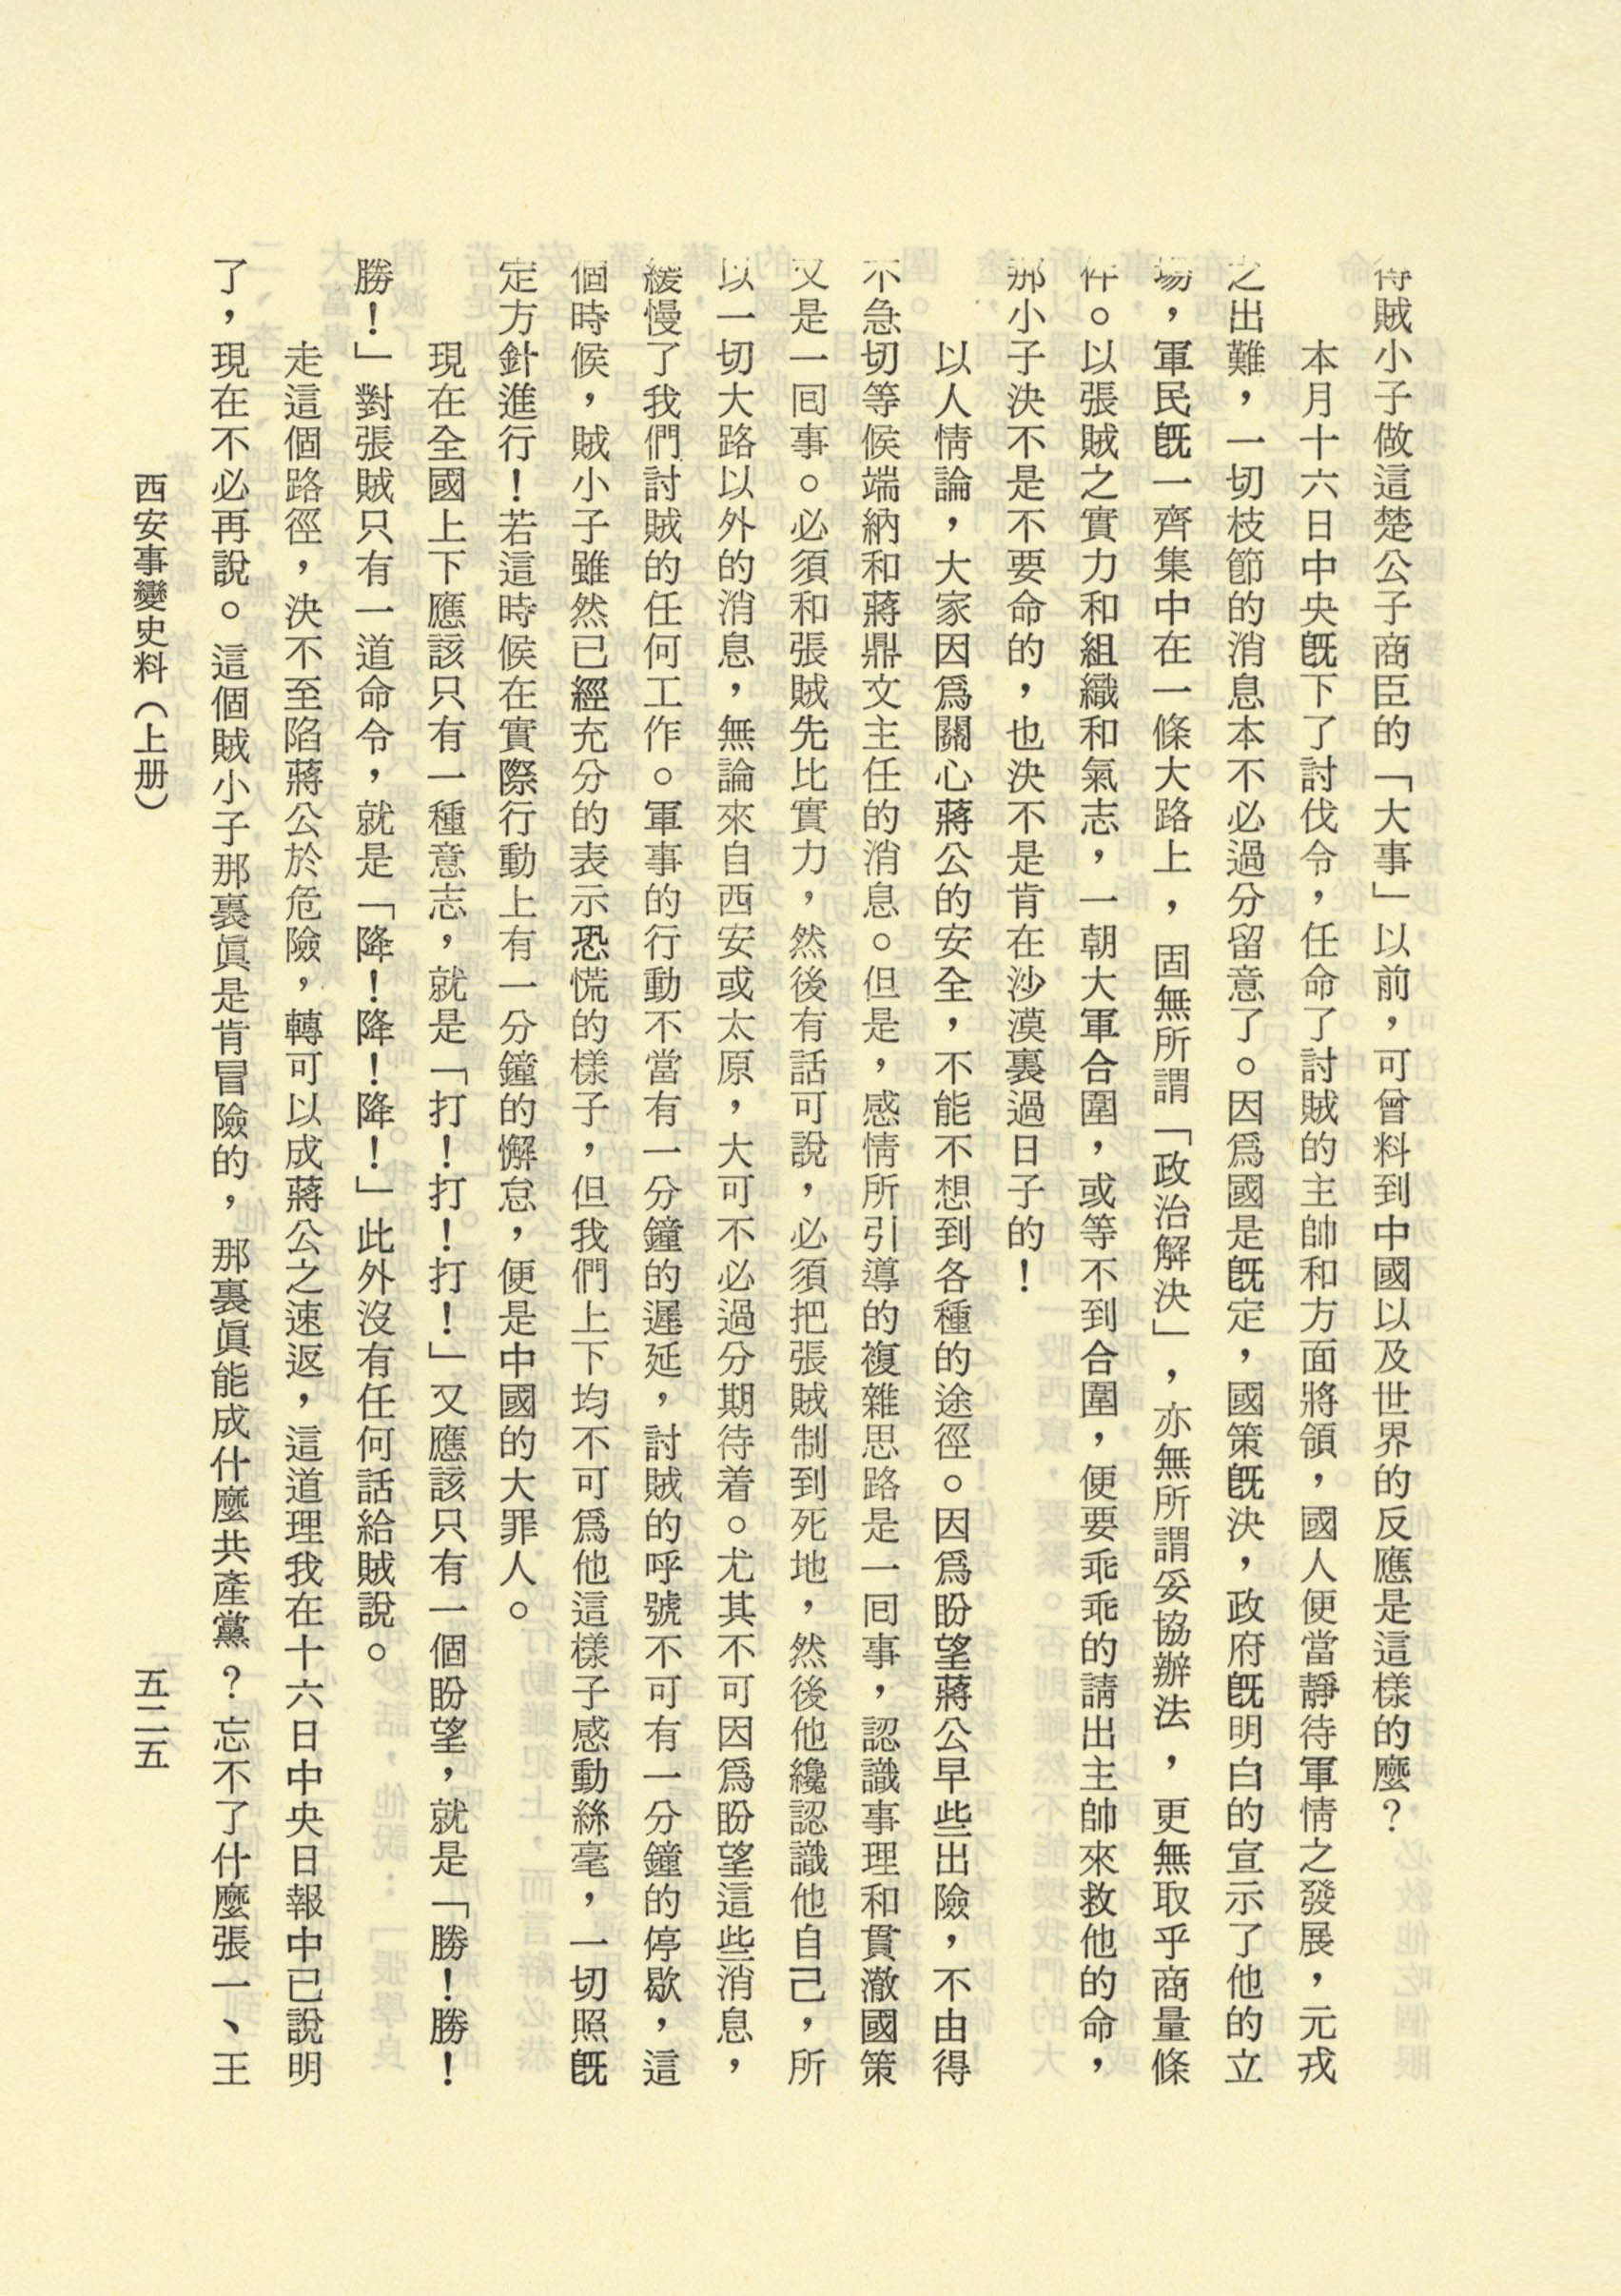 得賊小子做這楚公子商臣的「大事」以前，可曾料到中國以及世界的反應是這樣的麼？
本月十六日中央旣下了討伐令，任命了討賊的主帥和方面將領，國人便當靜待軍情之發展，元戎
之出難，一切枝節的消息本不必過分留意了。因爲國是旣定，國策旣決，政府旣明白的宣示了他的立
場，軍民旣一齊集中在一條大路上，固無所謂「政治解決」，亦無所謂妥協辦法，更無取乎商量條
件。以張賊之實力和組織和氣志，一朝大軍合圍，或等不到合圍，便要乖乖的請出主帥來救他的命，
那小子決不是不要命的，也決不是肯在沙漠裏過日子的！
以人情論，大家因爲關心蔣公的安全，不能不想到各種的途徑。因爲盼望蔣公早些出險，不由得
不急切等候端納和蔣鼎文主任的消息。但是，感情所引導的複雜思路是一囘事，認識事理和貫澈國策
又是一囘事。必須和張賊先比實力，然後有話可說，必須把張賊制到死地，然後他纔認識他自己，所
以一切大路以外的消息，無論來自西安或太原，大可不必過分期待着。尤其不可因爲盼望這些消息，
緩慢了我們討賊的任何工作。軍事的行動不當有一分鐘的遲延，討賊的呼號不可有一分鐘的停歇，這
個時候，賊小子雖然已經充分的表示恐慌的樣子，但我們上下均不可爲他這樣子感動絲毫，一切照旣
定方針進行！若這時候在實際行動上有一分鐘的懈怠，便是中國的大罪人。
現在全國上下應該只有一種意志，就是「打！打！打！」又應該只有一個盼望，就是「勝！勝！
勝！」對張賊只有一道命令，就是「降！降！降！」此外沒有任何話給賊說。
走這個路徑，決不至陷蔣公於危險，轉可以成蔣公之速返，這道理我在十六日中央日報中已說明
了，現在不必再說。這個賊小子那裏眞是肯冒險的，那裏眞能成什麼共產黨？忘不了什麼張一、王
西安事變史料（上册）
五二五